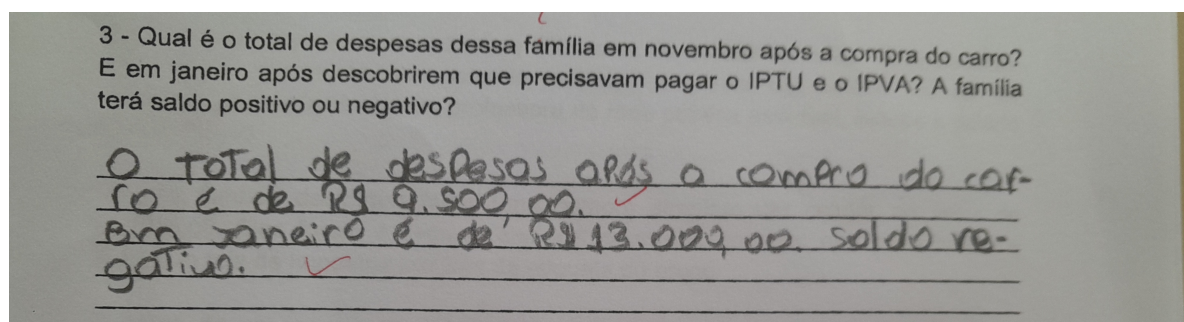 3 - Qual é o total de despesas dessa família em novembro após a compra do carro?
E em janeiro após descobrirem que precisavam pagar o IPTU e o IPVA? A família
terá saldo positivo ou negativo?
O total de despesas após a compra do car-
ro é de R$ 9.500,00.
Em janeiro é de R$ 13.000,00. saldo ne-
gativo.